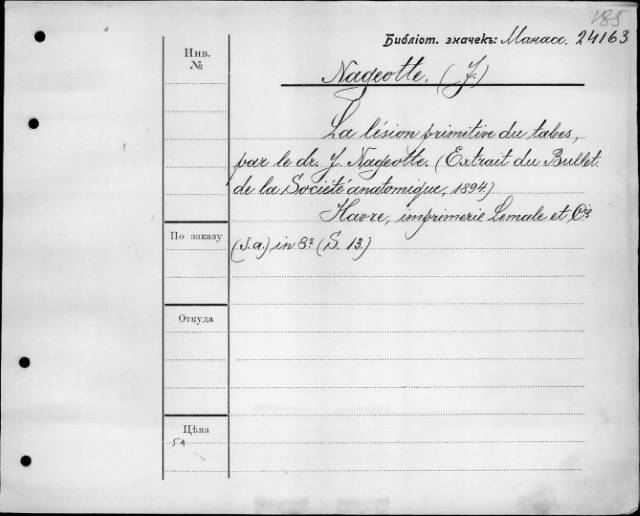 185
Библіот. значекъ: Манасс. 24163
Инв.
№
Nageotte. (J.)
La lésion primitive du tabes,
par le dr. J. Nageotte. (Extrait du Bullet.
de la Société anatomique, 1894.)
Havre, imprimerie Lemale et Cie
По заказу
(s.a.) in 8º (S. 13.)
Откуда
Цѣна